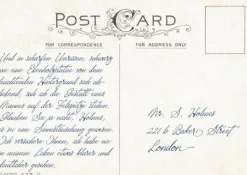 POST CARD
FOR CORRESPONDENCE
FOR ADDRESS ONLY
Und in scharfen Umrissen, schwarz
wie eine Ebenholzstatue von dem
leuchtenden Hintergrund sich ab-
hebend, sah ich die Gestalt eines
Mannes auf der Felsspitze stehen.
Glauben Sie ja nicht, Holmes,
es sei eine Sinnestäuschung gewesen.
Ich versichere Ihnen, ich habe nie
in meinem Leben etwas klarer und
deutlicher gesehen.
Mr. S. Holmes
221 b Baker Street
London